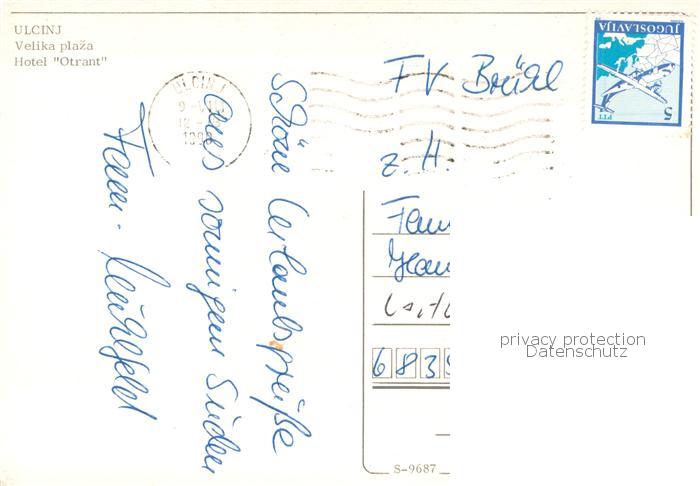 ULCINJ
Velika plaža
Hotel "Otrant"
ULCINJ
JUGOSLAVIJA
PTT
5
Schöne Urlaubsgrüße
aus sonnigem Süden
Fam. Mühlfeld
FV Brühl
z. H.
Fam
683
privacy protection
Datenschutz
S-9687